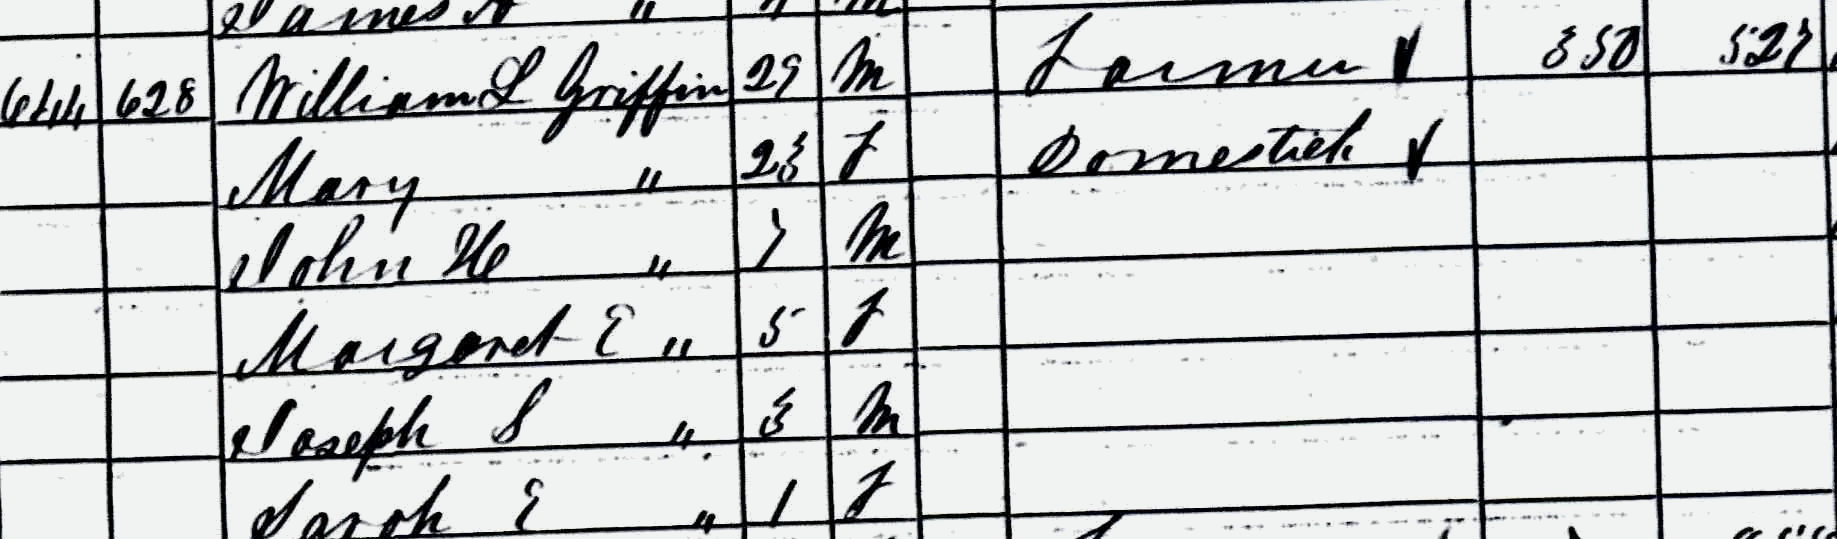 James A "
644 628 William L Griffin 29 M Farmer 350 527
Mary " 23 F Domestick
John H " 7 M
Margaret E " 5 F
Joseph S " 3 M
Sarah E " 1 F